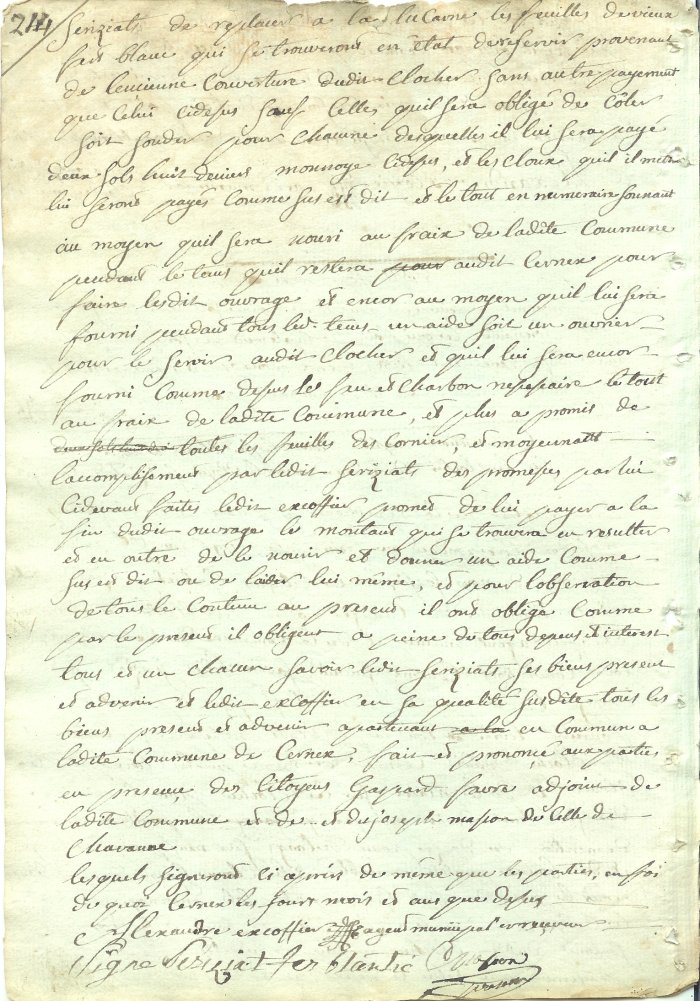 214
Seriziat de replacer a la lucarne les feuilles de vieux
fais blanc qui se trouveront en état de reservir provenant
de lencienne couverture dudit Clocher sans autre payement
que celui cidesus sauf celles quil sera obligé de côler
soit souder pour chacune desquelles il lui sera payé
deux sols huit deniers monnoye cidesus, et les cloux quil il mettra
lui seront payés comme sus est dit et le tout en numeraire sonnant
au moyen quil sera nouri au fraix de ladite Commune
pendant le tems quil restera pour audit Cernex pour
faire lesdit ouvrage et encor au moyen quil lui sera
fourni pendant tous led. tems un aide soit un ouvrier
pour le servir audit Clocher et quil lui sera encor
fourni comme desus le feu et charbon nessaire le tout
au fraix de ladite Commune, et plus a promis de
toutes les feuilles des cornier, et moyennant
l'accomplisement par ledit Seriziat des promeses par lui
cidevant faites ledit excoffier promet de lui payer a la
fin dudit ouvrage le montant qui se trouvera en resulter
et en outre de le nourir et donner un aide comme
sus est dit ou de laider lui même, et pour lobservation
de tous le contenu au present il ont obligé comme
par le present il obligent a peine de tous depens et interest
tous et un chacun savoir ledit Seriziat ses biens present
et advenir et ledit excoffier en sa qualité susdite tous les
biens present et advenir apartenant a la en commun a
ladite Commune de Cernex, fait et prononcé aux parties
en presence des Citoyens Gaspard favre adjoint de
ladite Commune et de et de joseph masson de celle de
Chavanne
lesquels signeront ci après de même que les parties, en foi
de quoi Cernex les jours mois et an que desus
Alexandre excoffier agent municipal
Signe Seriziat ferblantié